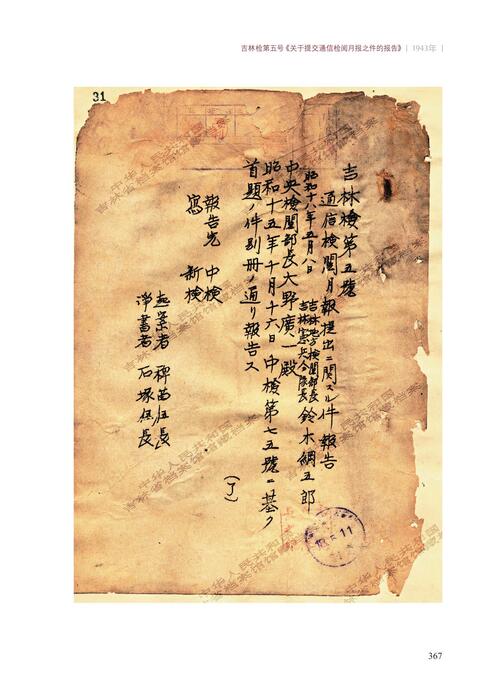 吉林检第五号《关于提交通信检阅月报之件的报告》 | 1943年 |
31
吉林檢第五號
通信檢閲月報提出ニ関スル件報告
昭和十八年五月八日
吉林地方檢閲部長
吉林憲兵分隊長
鈴木綱五郎
中央檢閲部長大野廣一殿
昭和十五年十月十六日中檢第七五號ニ基ク
首題ノ件別冊ノ通リ報告ス
(了)
報告先 中檢
寫 新檢
起案者 稗苗伍長
淨書者 石塚伍長
18.5.11
中华人民共和国
吉林省档案馆馆藏档案
367